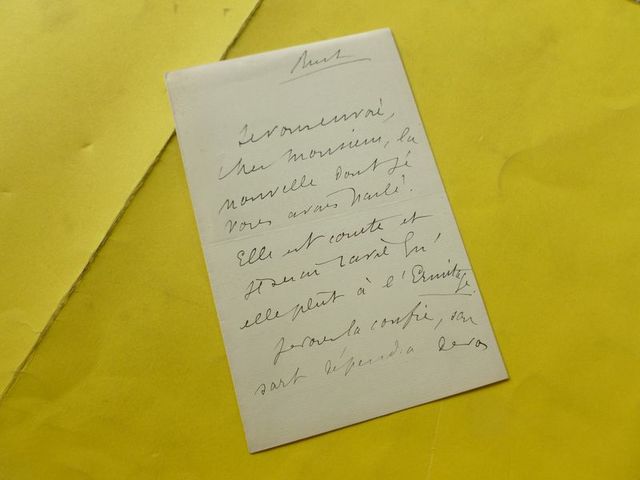 Je vous envoie,
cher Monsieur, la
nouvelle dont je
vous avais parlé.
Elle est courte et
je serais ravie qu'
elle plût à l'Ermitage.
Je vous la confie, son
sort dépendra de vos